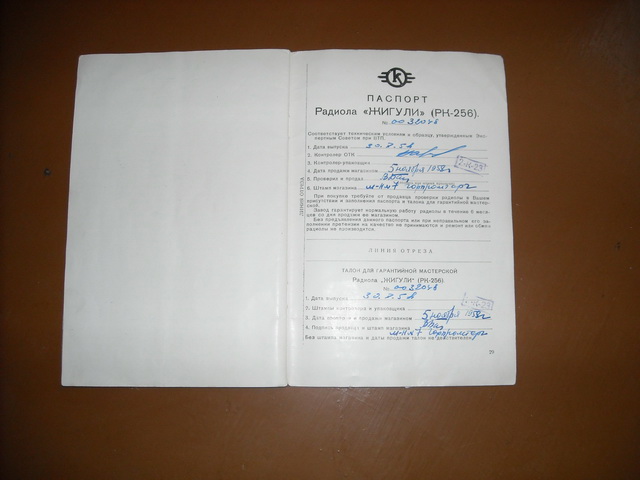 К
ПАСПОРТ
Радиола «ЖИГУЛИ» (РК-256).
№ 0032048
Соответствует техническим условиям и образцу, утвержденным Экс-
пертным Советом при ОТП.
1. Дата выпуска
2. Контролер ОТК
3. Контролер-упаковщик
4. Дата продажи магазином 5 ноября 1958г
5. Проверил и продал
6. Штамп магазина м-н №7 Горпромторг
При покупке требуйте от продавца проверки радиолы в Вашем
присутствии и заполнения паспорта и талона для гарантийной мастер-
ской.
Завод гарантирует нормальную работу радиолы в течение 6 меся-
цев со дня продажи ее магазином.
Без предъявления данного паспорта или при неправильном его за-
полнении претензии на качество не принимаются и ремонт или обмен
радиолы не производится.
ЛИНИЯ ОТРЕЗА
ЛИНИЯ ОТРЕЗА
ТАЛОН ДЛЯ ГАРАНТИЙНОЙ МАСТЕРСКОЙ
Радиола „ЖИГУЛИ" (РК-256)
№ 0032048
1. Дата выпуска
2. Штампы контролера и упаковщика
3. Дата продажи магазином 5 ноября 1958г
4. Подпись продавца и штамп магазина
м-н №7 Горпромторг
Без штампа магазина и даты продажи талон не действителен.
29